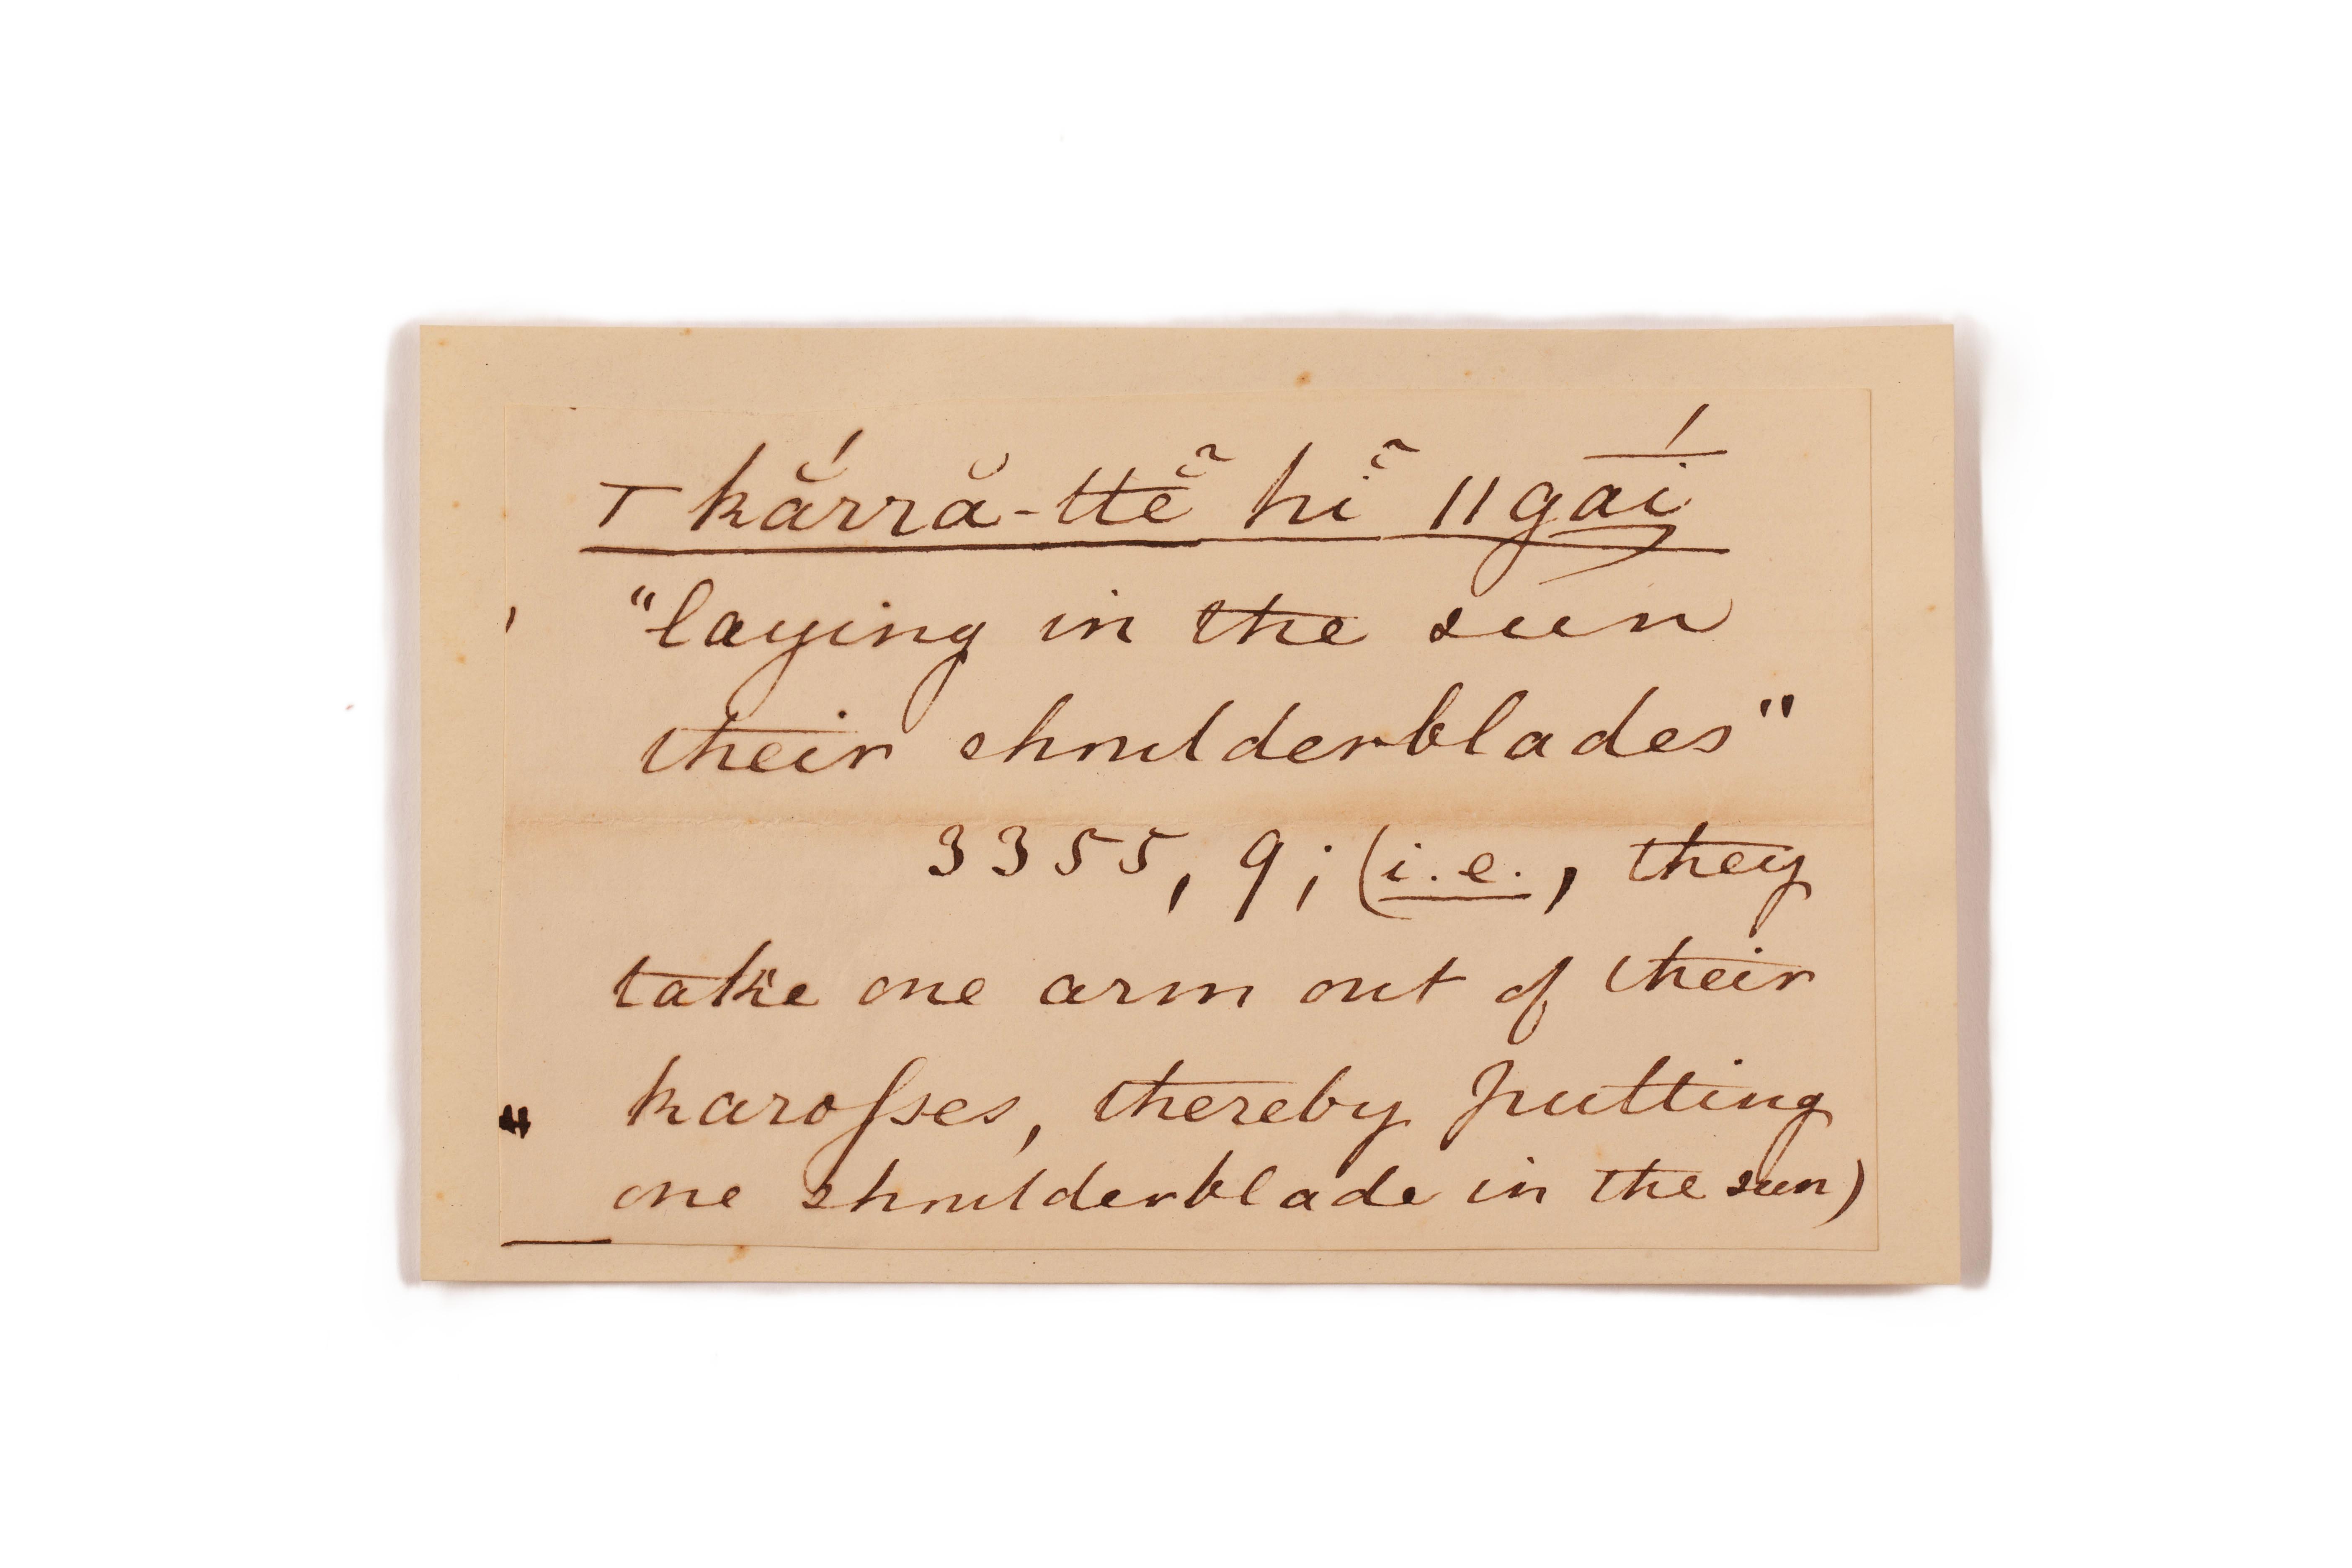 ⊤kắrră-ttĕ̃ hĭ̃ ǁgā́i
"laying in the sun
their shoulderblades"
3355, 9; (i.e., they
take one arm out of their
karoſses, thereby putting
one shoulderblade in the sun)